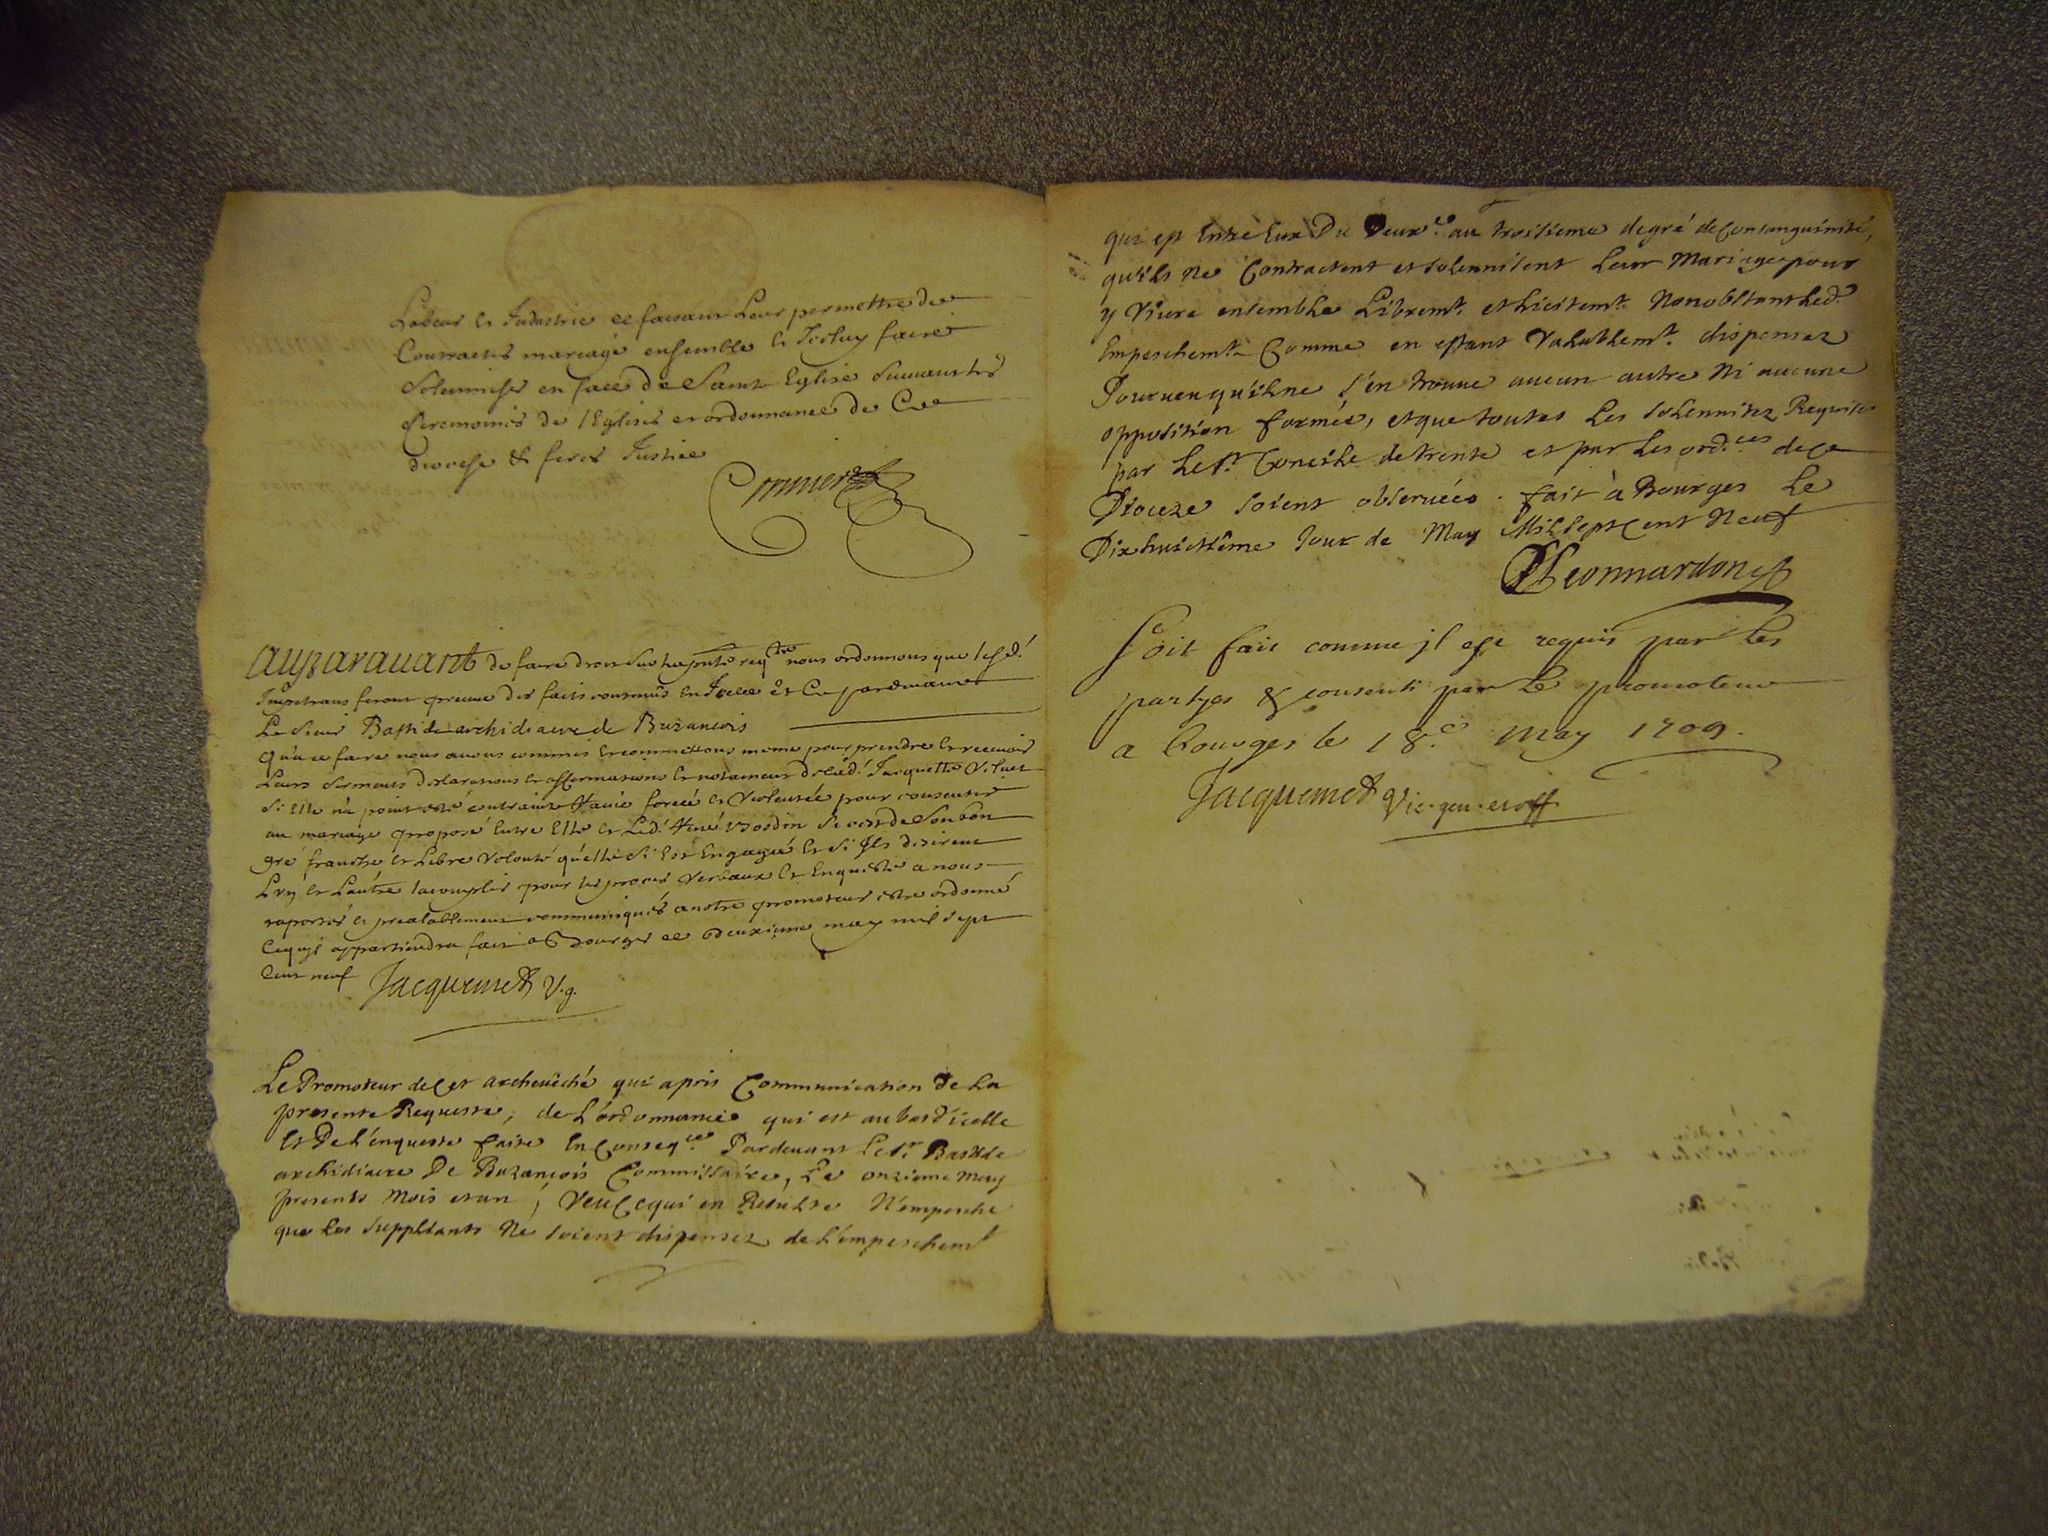 Labeur et Industrie ce faisant Leur permettre de
Contracter mariage ensemble et Iceluy faire
Solemniser en face de Sainte Eglise Suivant les
Ceremonies de l'Eglise et ordonnance de Ce
diocese & ferez Justice
Auparavant de faire droit sur la pnte reqte nous ordonnons que lesd.
Impetrans feront preuve des faits contenus en Icelle et Ce pardevant
Le Sieur Bastide archidiacre de Buzancois
Qu'a ce faire nous avons commis et commettons mesme pour prendre et recevoir
Leurs serments declarations et affirmations et notament de lad. Jacquette
Si elle n'a point esté contrainte forcée et violentée pour consentir
au mariage proposé entre Elle et Led. René Si c'est de Son bon
gré franche et Libre volonté qu'elle s'i Est Engagée et si Ils desirent
L'un et L'autre l'acomplir pour les proces verbaux et Enqueste a nous
raportés et prealablement communiqués a notre promoteur estre ordonné
Ce qu'il appartiendra fait a Bourges ce deuxieme may mil sept
Cent neuf Jacquemet V.g.
Le Promoteur de Cet archevêché qui a pris Communication de La
presente Requeste, de L'ordonnance qui est au bas d'icelle
Et De L'enqueste faite En Conseqce Pardevant Le Sr Bastide
archidiacre De Buzançois Commissaire, Le onzieme May
presents Mois et an, Veu Ce qui en Resulte N'empesche
que Les suppliants Ne soient dispensez de L'empeschemt
qui est Entre Eux Du Deuxe au troisieme degré de Consanguinité,
qu'ils Ne Contractent et solennisent Leur Mariage pour
y Vivre ensemble Libremt et Licitemt Nonobstant Led.
Empeschemt Comme en estant Valablemt dispensez
Pourveu qu'il ne s'en trouve aucun autre Ni aucune
opposition formée, et que toutes Les solennitez Requises
par Le St Concile de trente et par Les ordces de Ce
Dioceze soient observées. fait à Bourges Le
Dix huictième Jour de May Mil Sept Cent Neuf
Leonnardon
Soit fait comme il est requis par les
partyes & consenti par le promoteur
a Bourges le 18e May 1709.
Jacquemet Vic. gen. et off.